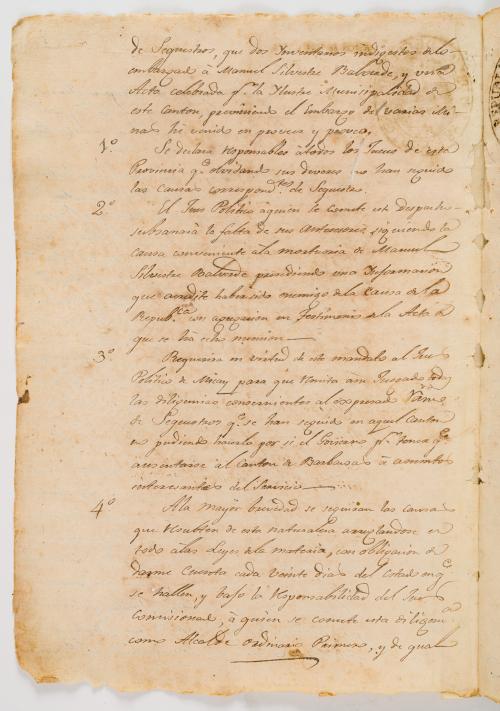 de Sequestros, que dos Inventarios indigestos de lo
embargad à Manuel Silvestre Balverde, y una
Acta celebrada pr. la Ilustre Municipalidad de
este Canton, previniendo el Embargo de varias
nas he venido en proveer y proveo.
1.º Se declara responsables à todos los Jueces de esta
Provincia qe. olvidando sus deveres no han seguido
las causas correspondtes. de Sequestro
2.º El Juez Politico àquien se comete este despacho
subsanarà la falta de sus Antecesores siguiendo la
causa conveniente ala mortuoria de Manuel
Silvestre Balverde precediendo una Informacion
que acredite haber sido enemigo de la causa de la
Republca. con agregacion en Testimonio de la Acta de
que se ha echo mencion
3.º Requerira en virtud de este mandato al Juez
Politico de Micay para que remita am Juzgado todas
las diligencias concernientes al expresado Ramo
de Sequestros qe. se han seguido en aquel Canton
no pudiendo hacerlo por si el pr. tener qe.
ausentarse al Canton de Barbacoas à asuntos
interesantes del Servicio
4.º Ala mayor brevedad se seguiran las causas
que resulten de esta naturaleza arreglandose en
todo alas Leyes de la materia, con obligacion de
darme Cuenta cada veinte dias del estado en qe.
se hallen, y bajo la responsabilidad del Juez
comisionado, à quien se comete esta diligencia
como Alcalde Ordinario Primero, y de qual